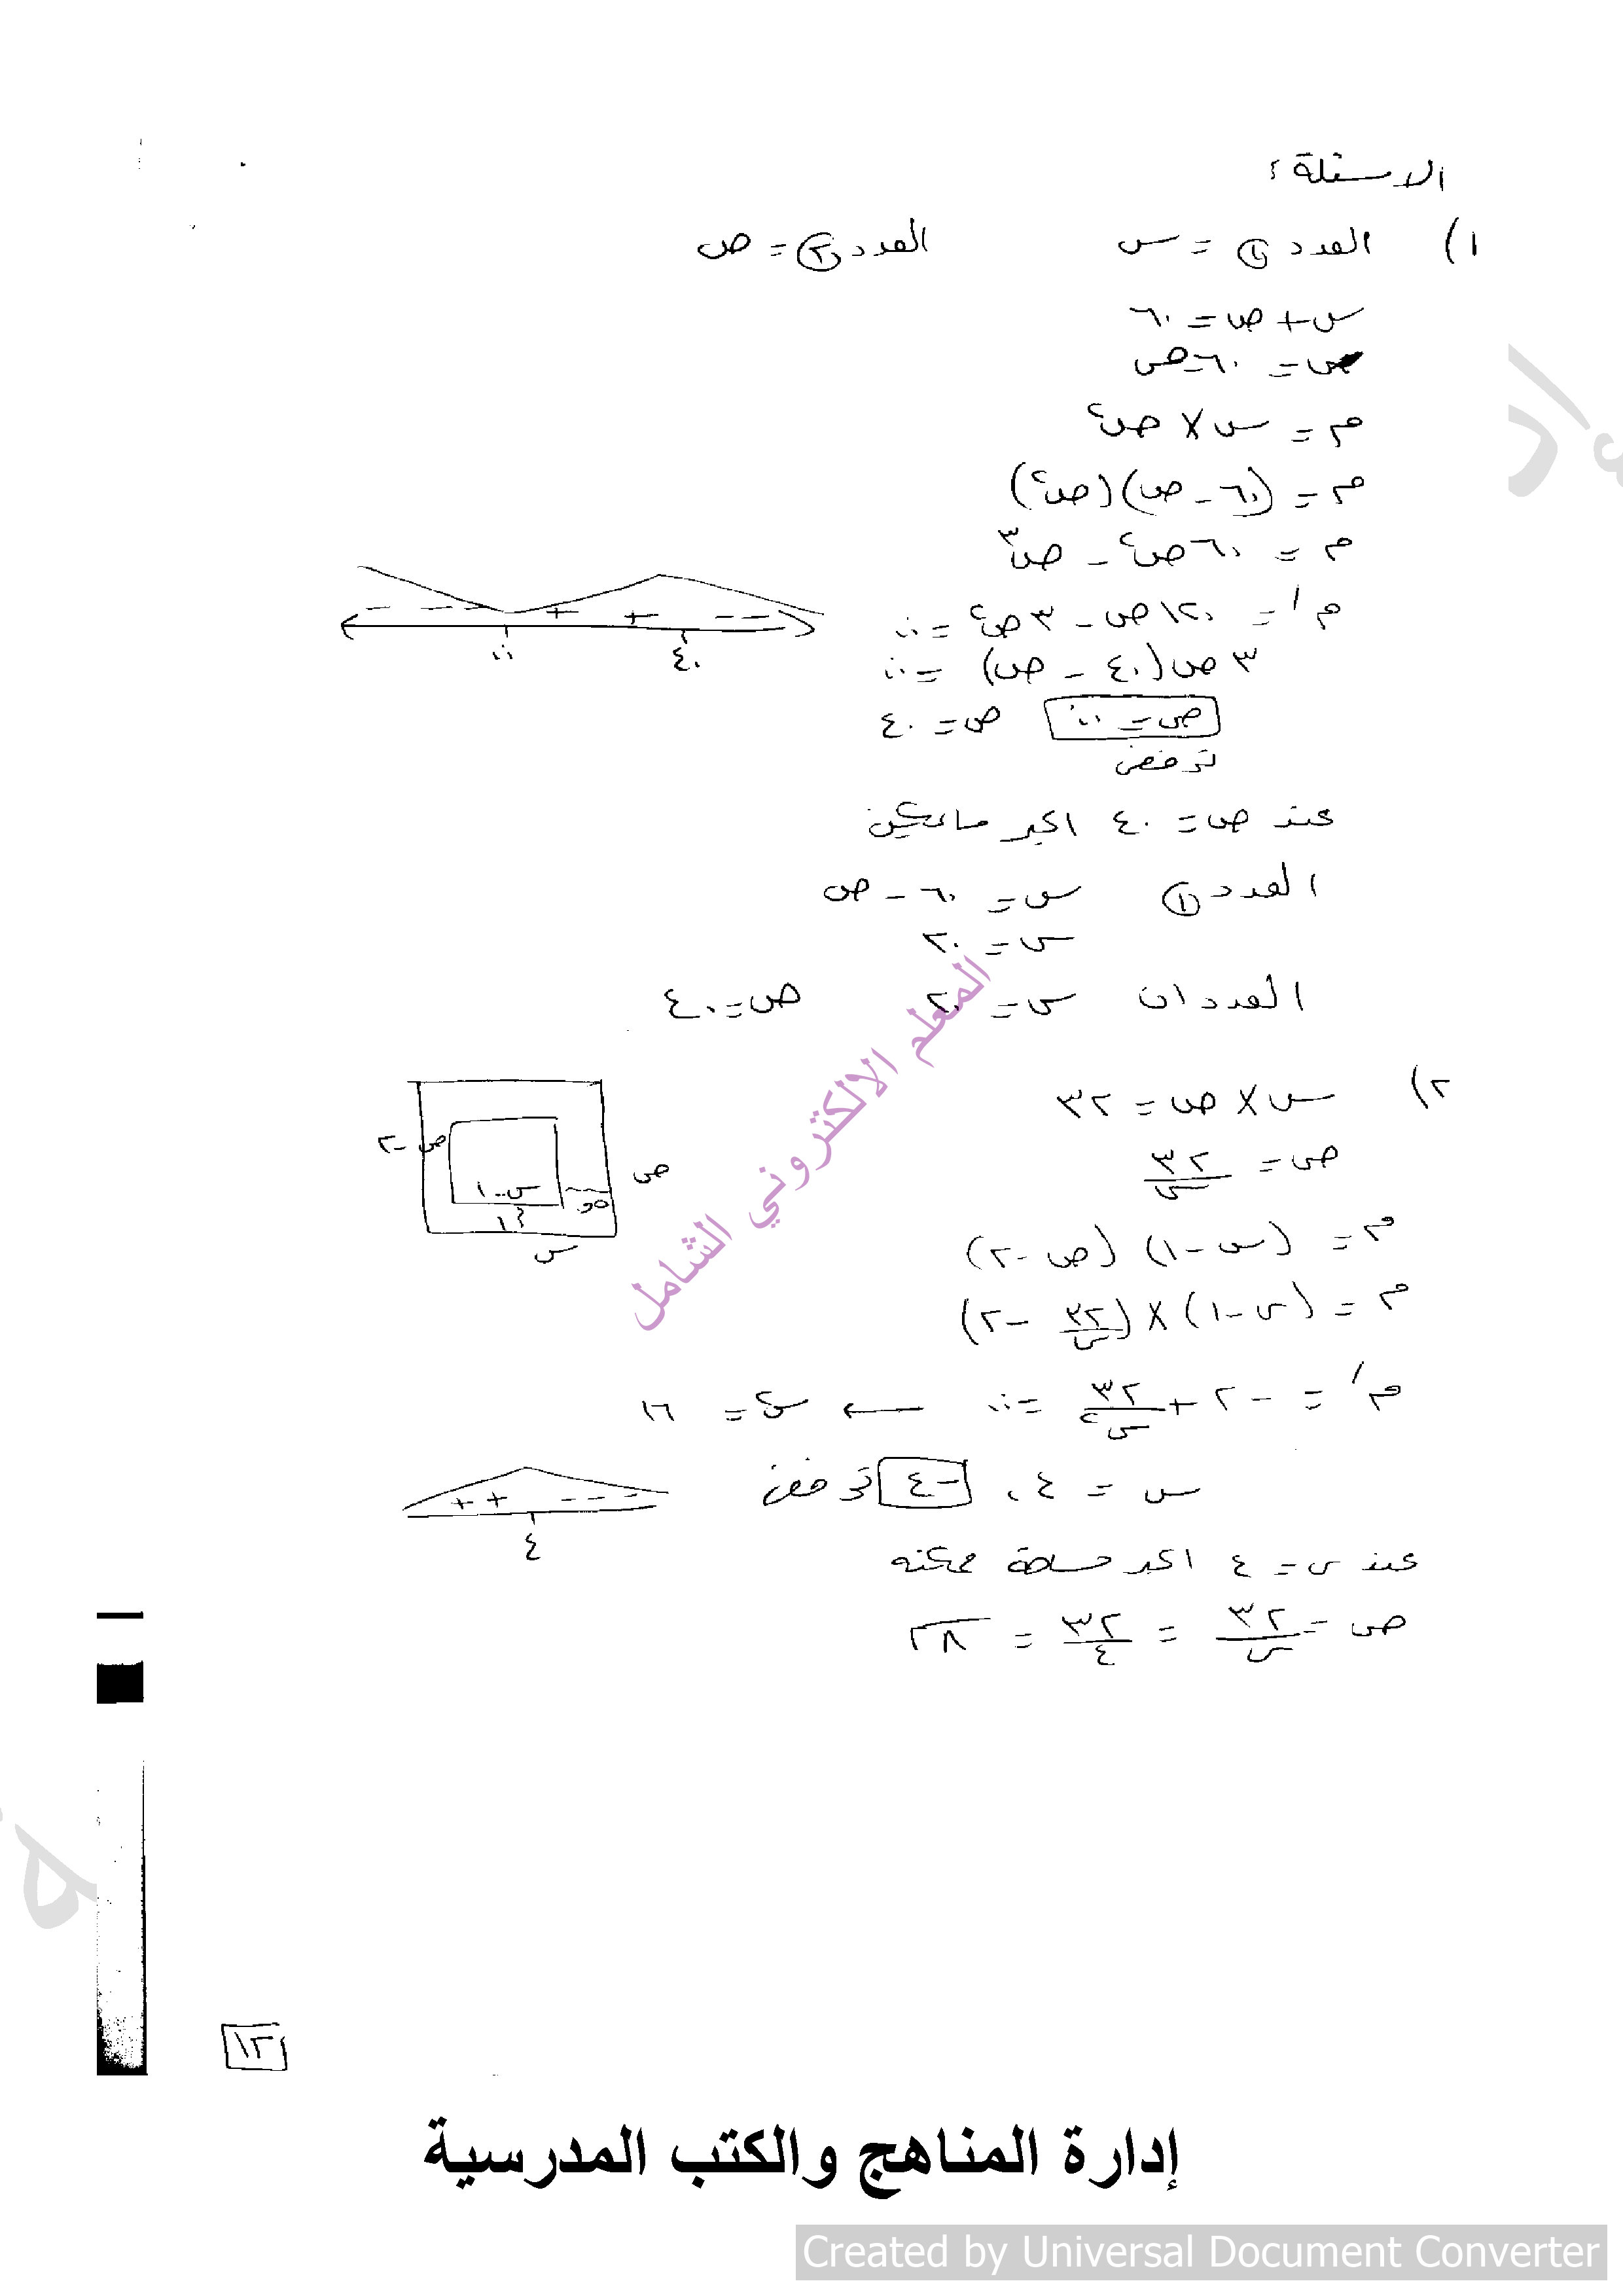 الاسئلة :
١) العدد ① = س العدد ② = ص
س + ص = ٦٠
س = ٦٠ - ص
م = س × ص²
م = (٦٠ - ص)(ص²)
م = ٦٠ص² - ص³
م' = ١٢٠ص - ٣ص² = ٠
٣ص(٤٠ - ص) = ٠
ص = ٠ ص = ٤٠
ترفض
- - - - + + - -
٠ ٤٠
عند ص = ٤٠ اكبر ما يمكن
العدد ① س = ٦٠ - ص
س = ٢٠
العددان س = ٢٠ ص = ٤٠
٢) س × ص = ٣٢
ص = ٣٢/س
ص - ٢
س - ١
ص
١
س
م = (س - ١)(ص - ٢)
م = (س - ١) × (٣٢/س - ٢)
م' = -٢ + ٣٢/س² = ٠ ← س² = ١٦
س = ٤ ، -٤ ترفض
+ + - - -
٤
عند س = ٤ اكبر مساحة ممكنه
ص = ٣٢/س = ٣٢/٤ = ٨
المعلم الالكتروني الشامل
١٢
إدارة المناهج والكتب المدرسية
Created by Universal Document Converter